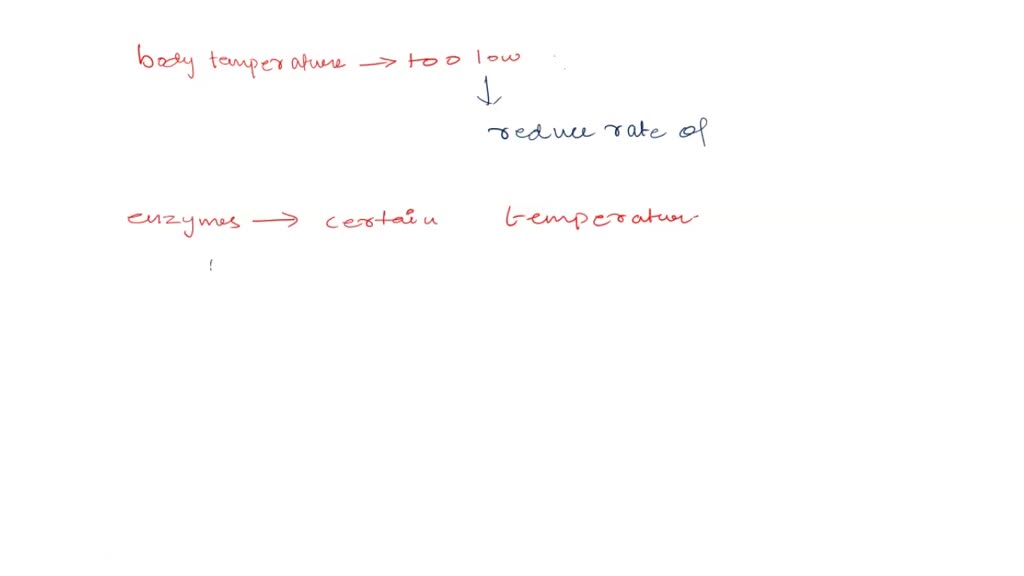 body temperature → too low
↓
reduce rate of
enzymes → certain temperatur